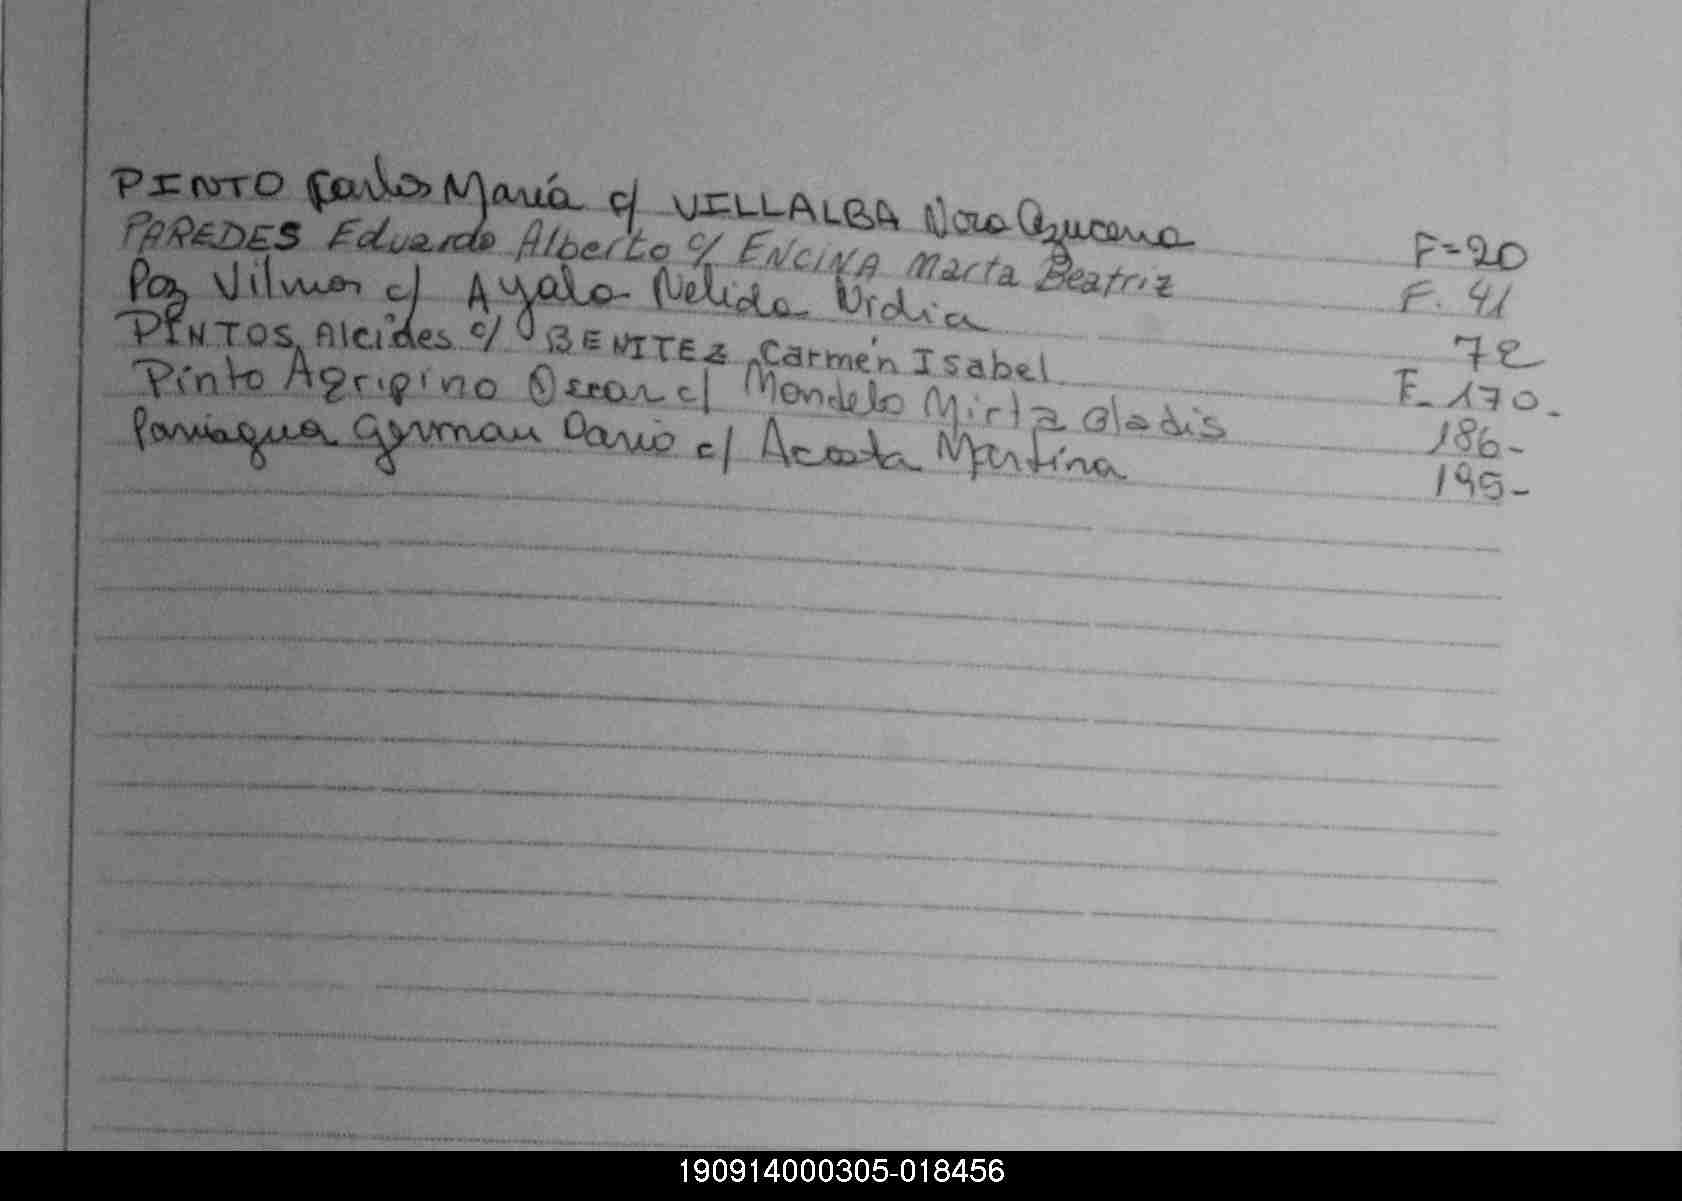 PINTO Carlos María c/ VILLALBA Nora Azucena F=20
PAREDES Eduardo Alberto c/ ENCINA Marta Beatriz F. 41
Paz Vilmar c/ Ayala Nelida Nidia 72
PINTOS, Alcides c/ BENITEZ, Carmen Isabel F- 170-
Pinto Agripino Oscar c/ Mondelo Mirta Gladis 186-
Paniagua German Dario c/ Acosta Martina 195-
190914000305-018456